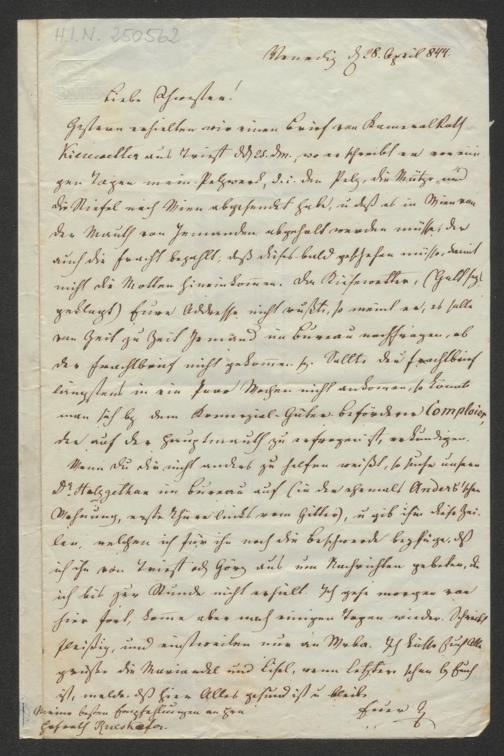 H.I.N. 250562
Venedig d. 28. April 844.
Liebe Schwester!
Gestern erhielten wir einen Brief von Kameralrath
Kiesewetter aus Triest dd 25. dM., wo er schreibt er vor eini-
gen Tagen mein Pelzwerk, d. i. den Pelz, die Mütze, und
die Stiefel nach Wien abgesendet habe, u. daß es in Wien von
der Mauth von Jemanden abgeholt werden müsse, der
auch die Fracht bezahlt; daß dieses bald geschehen müsse, damit
nicht die Motten hineinkommen. Da Kiesewetter, (Gott sey's
geklagt) Eure Addresse nicht wußte, so meint er, es solle
von Zeit zu Zeit Jemand im Bureau nachfragen, ob
der Frachtbrief nicht gekommen sey. Sollte der Frachtbrief
längstens in ein Paar Wochen nicht ankommen, so könnte
man sich bey dem Kommerzial-Güter-Beförderer Comploier,
der auf der Hauptmauth zu erfragen ist, erkundigen.
Wenn Du dir nicht anders zu helfen weißt, so suche unsern
Dr. Holzgethan im Bureau auf (in der ehemals Anders'schen
Wohnung, erste Thüre links vom Gitter), u. gib ihm diese Zei-
len, welchen ich für ihn noch die Beschwerde beyfüge, daß
ich ihn von Triest od. Görz aus um Nachrichten gebeten, die
ich bis zur Stunde nicht erhielt. Ich gehe morgen von
hier fort, komme aber nach einigen Tagen wieder. Schreibt
fleißig, und einstweilen nur an Mrba. Ich küsse Euch Alle
grüße die Mariandel und Lisel, wenn letztere schon bey Euch
ist, melde daß hier Alles gesund ist u. bleibe
Euer
Meine besten Empfehlungen an Hrn
Hofrath